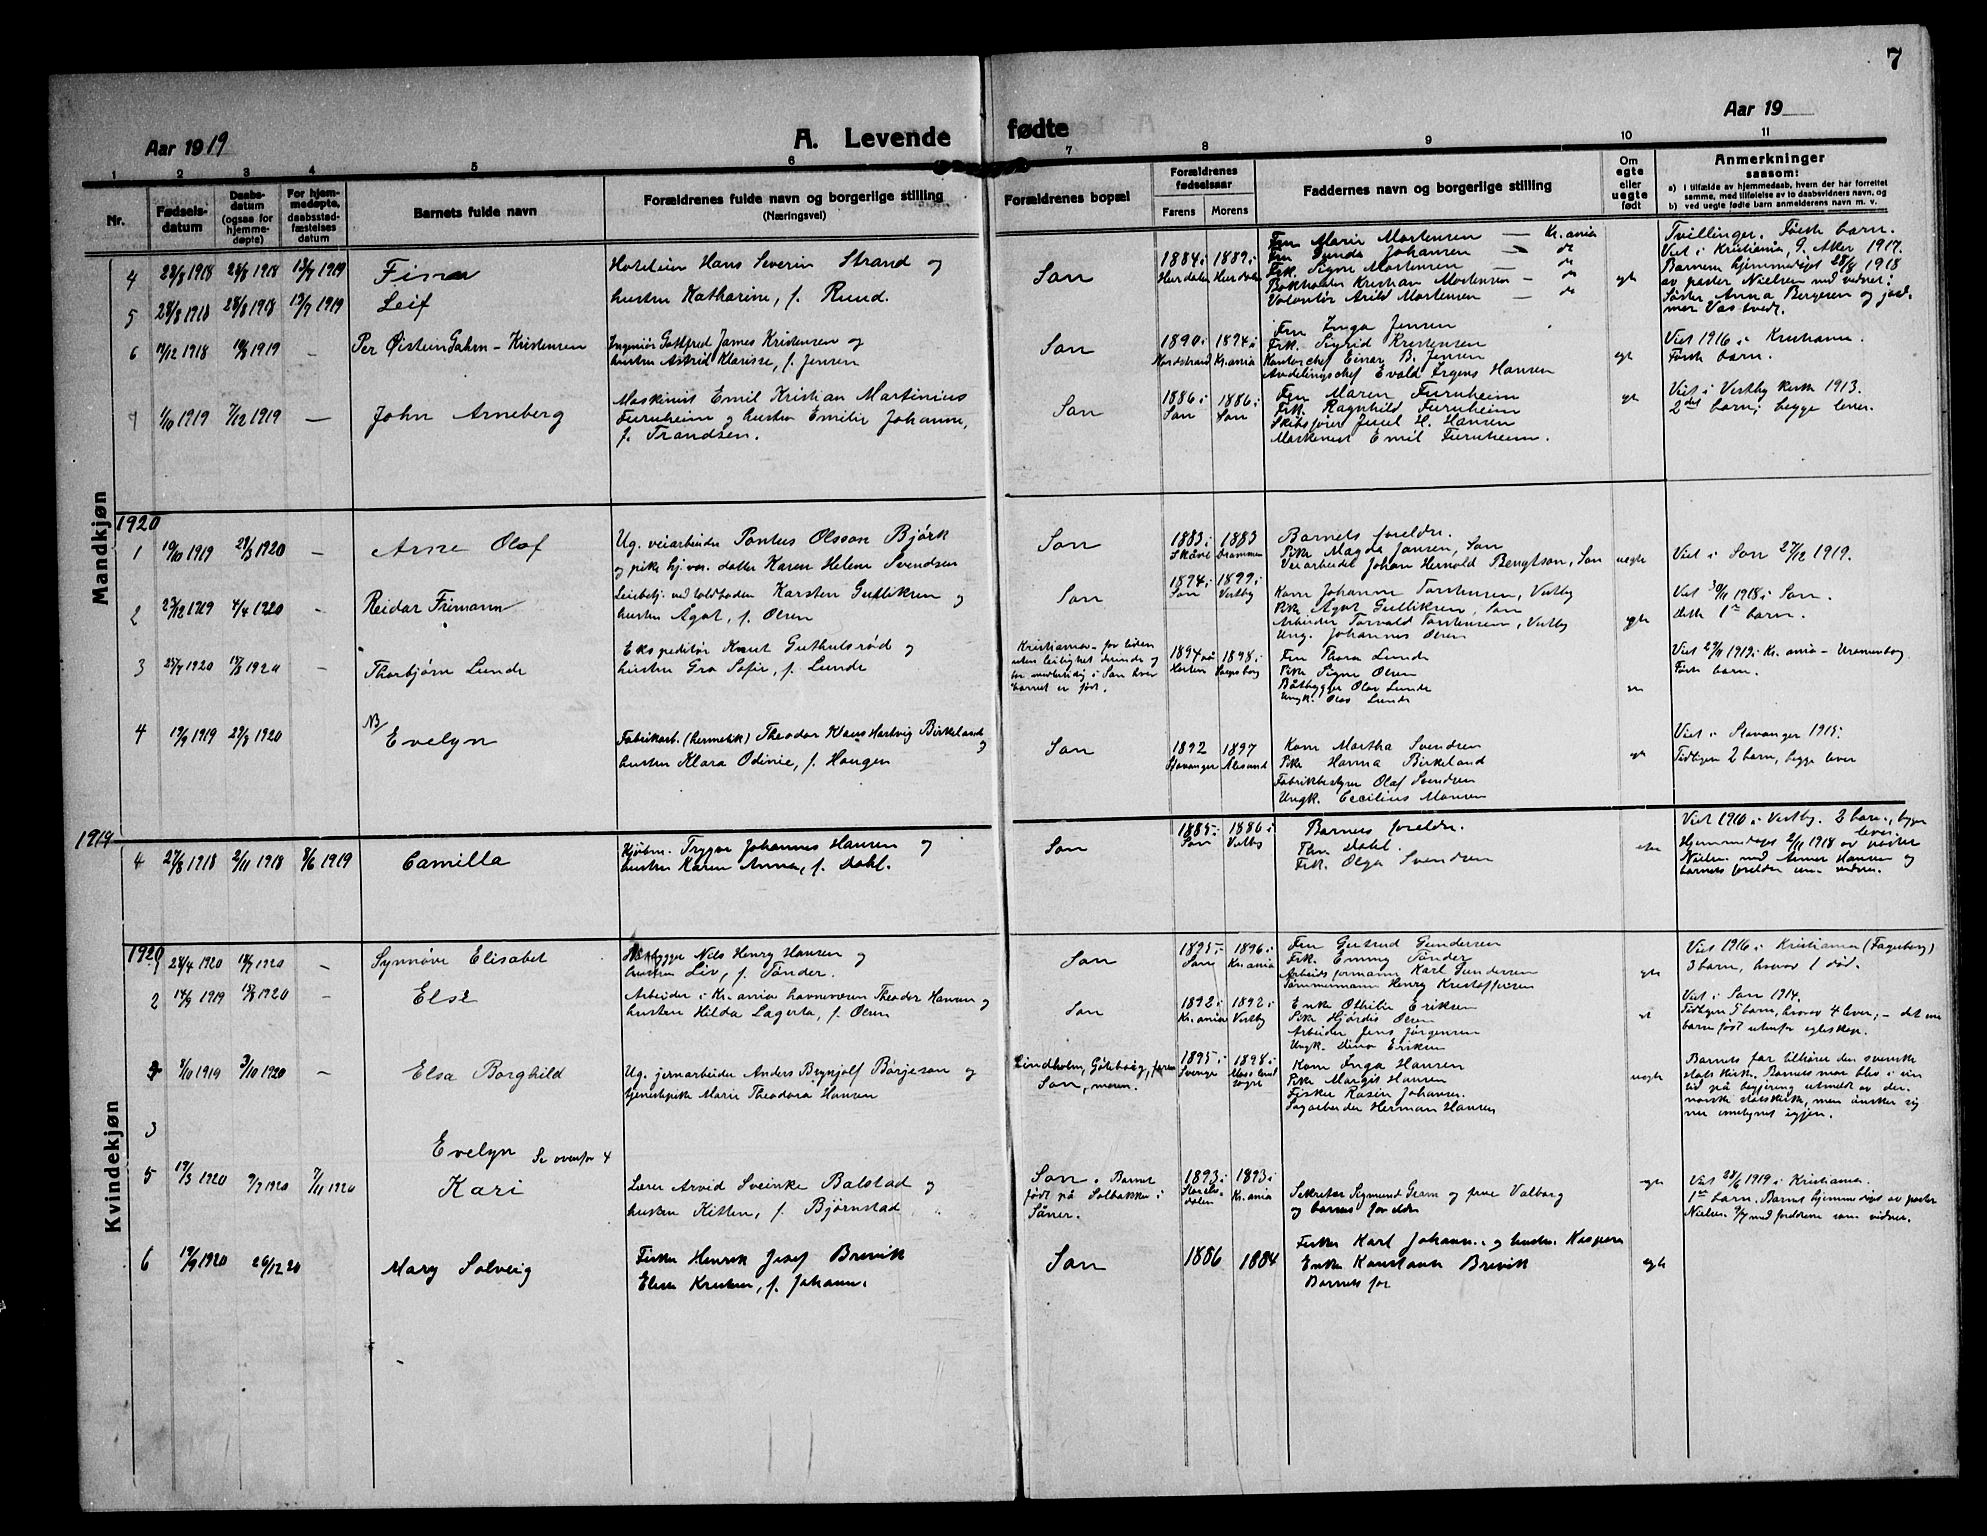 7
Aar 1919
A. Levende fødte
Aar 19
1 2 3 4 5 6 7 8 9 10 11
Nr.
Fødsels-
datum
Daabs-
datum
(ogsaa for
hjemme-
døpte)
For hjem-
medøpte,
daabsstad-
fæstelses
datum
Barnets fulde navn
Forældrenes fulde navn og borgerlige stilling
(Næringsvei)
Forældrenes bopæl
Forældrenes
fødselsaar
Farens Morens
Faddernes navn og borgerlige stilling
Om
egte
eller
uegte
født
Anmerkninger
saasom:
a) i tilfælde av hjemmedaab, hvem der har forrettet
samme, med tilføielse av to daabsvidners navn, og
b) ved uegte fødte barn anmelderens navn m. v.
Mandkjøn
4 28/8 1918 28/8 1918 13/7 1919
Hans Severin Strand og
5 28/8 1918 28/8 1918 13/7 1919 Leif
hustru Katharine, f. Rund.
Son
1884 i 1889 i
egte
Fru Marie Mortensen — Kr.ania
Fru Gunda Johansen — do
Frk. Signe Mortensen — do
Bokholder Kristian Mortensen — do
Volontør Arild Mortensen — do
Tvillinger. Første barn.
Viet i Kristiania, G. Aker 1917.
Barnene hjemmedøpt 28/8 1918
av pastor Nielsen med vidner:
Søster Anna Bergersen og jord-
mor Vastvedt.
6 1918 1919 — Per Øistein Gahrn-Kristensen
Ingeniør Gottfred James Kristensen og
hustru Astrid Klarisse, f. Jensen
Son
1890 i 1894 i
Nordstrand Kr.ania
Fru Inga Jensen
Frk. Sigrid Kristensen
Kontorchef Einar B. Jensen
Avdelingschef Evald Irgens Hansen
egte
Viet 1916 i Kristiania.
Første barn.
7 1/10 1919 7/12 1919 — John Arneberg
Maskinist Emil Kristian Martinius
Furuheim og hustru Emilie Johanne,
f. Trandsen.
Son
1886 i 1886 i
Son Son
Fru Maren Furuheim
Frk. Ragnhild Furuheim
Skibsfører Juul H. Hansen
Maskinist Emil Furuheim.
egte
Viet i Vestby kirke 1913.
2det barn; begge lever.
1920
1 19/10 1919 1920 — Arne Olaf
Ug. veiarbeider Pontus Olsson Bjørk
og pike hj.vær. datter Karen Helene Svendsen
Son
1883 i 1883
Skåne Drammen
Barnets foreldre.
Pike Magda Jansen, Son
Veiarbeider Johan Hernold Bengtson, Son
uegte
Viet i Son 27/12 1919.
2 1919 4/4 1920 Reidar Frimann
ved toldboden Karsten Gulliksen og
hustru Agot, f. Olsen
Son
1894 i 1899 i
Son Vestby
Kone Johanne Torstensen, Vestby
Pike Agot Gulliksen, Son
Arbeider Torvald Torstensen, Vestby
Ung. Johannes Olsen
egte
Viet 1918 i Son.
dette 1ste barn.
3 1920 1920 — Thorbjørn Lunde
Ekspeditør Knut Guthulsrød og
hustru Gro Sofie, f. Lunde
Kristiania - for tiden
uten leilighet derinde og
bor midlertidig i Son hvor
barnet er født.
1894 på 1898 i
Horten Sarpsborg
Fru Thora Lunde
Pike Signe Olsen
Båtbygger Olav Lunde
Ungk. Olos Lunde
Viet 1919 i Kr.ania - Uranienborg.
Første barn.
4 19/9 1919 1920
NB/
Evelyn
Fabrikarb. (hermetik) Theodor Klaus Hartvig Birkeland
og
hustru Klara Odinie, f. Haugen
Son
1892 1897
Stavanger Ålesund
Kone Martha Svendsen
Pike Hanna Birkeland
Fabrikbestyrer Olaf Svendsen
Ungk. Cecilius Monsen
egte
Viet i Stavanger 1915.
Tidligere 2 barn, begge lever
1919
4 1918 2/11 1918 9/6 1919 Camilla
Kjøbm. Trygve Johannes Hansen og
hustru Karen Anna, f. Dahl.
Son
1885 i 1886 i
Son Vestby
Barnets foreldre.
Thor Dahl.
Frk. Olga Svendsen
Viet 1910 i Vestby. 2 barn, begge
lever.
Hjemmedøpt 2/11 1918 av pastor
Nielsen med Anna Hansen og
barnets foreldre som vidner.
Kvindekjøn
1920
1 1920 1920 — Synnøve Elisabet
Nils Henry Hansen og
hustru Liv, f. Tønder.
Son
1895 i 1896 i
Son Kr.ania
Fru Gertrud Gundersen
Frk. Emmy Tønder
Arbeidsformann Karl Gundersen
Tømmermann Henry Kristoffersen
egte
Viet 1916 i Kristiania (Fagerborg)
3 barn, hvorav 1 død.
2 14/9 1919 1920 — Else
Arbeider i Kr.ania havnevæsen Theodor Hansen og
hustru Hilda Lagerta, f. Olsen
Son
1892 i 1892 i
Kr.ania Vestby
Enke Othilie Eriksen
Pike Hjørdis Olsen
Arbeider Jens Jørgensen
Ungk. Dino Eriksen
Viet i Son 1914.
Tidligere 5 barn, hvorav 4 lever; - det ene
barn født utenfor egteskap.
3 1919 3/10 1920 — Elsa Borghild
Ug. jernarbeider Anders Brynjolf Børjeson og
tjenestepike Marie Theodora Hansen
Lindholm, Göteborg, faren
Son, moren.
1895 i 1898 i
Sverige Moss land-
sogn
Kone Inga Hansen
Pike Margit Hansen
Fisker Rasin Johansen.
Sagarbeider Herman Hansen
uegte
Barnets far tilhører den svenske
statskirke. Barnets mor blev i sin
tid på begjæring utmeldt av den
norske statskirke, men ønsker sig
nu innskrevet igjen.
3
Evelyn Se ovenfor 4
5 19/3 1920 9/7 1920 7/11 1920 Kari
Lærer Arvid Sveinke Balstad og
hustru Kitten, f. Bjørnstad
Son. Barnet
født på Solbakken i
Såner.
1893 i 1893 i
Kr.ania
Sekretær Sigmund Gram og frue Valborg
og barnets foreldre
egte
Viet 28/6 1919 i Kristiania.
1ste barn. Barnet hjemmedøpt av pastor
Nielsen 9/7 med foreldrene som vidner.
6 19/9 1920 26/12 20 Mary Solveig
Fisker Henrik Josef Brevik
Elise Kristine, f. Johanns.
Son
1886 1884
Fisker Karl Johanns. og hustru Kaspara
Enke Konstanse Brevik
Barnets far
egte